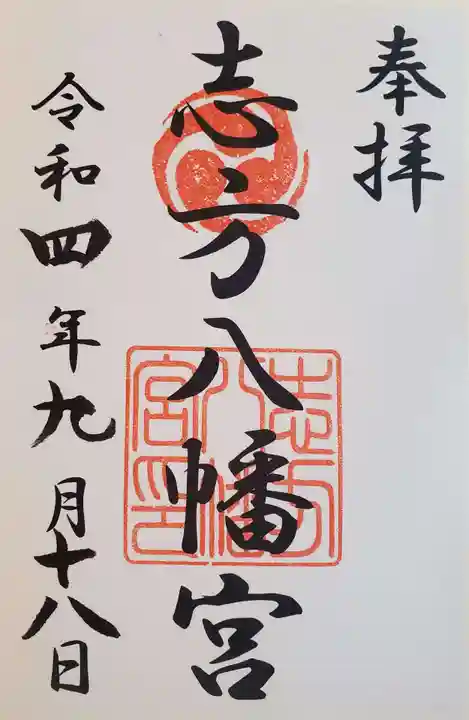 奉拝
志方八幡宮
志方八幡宮印
令和四年九月十八日